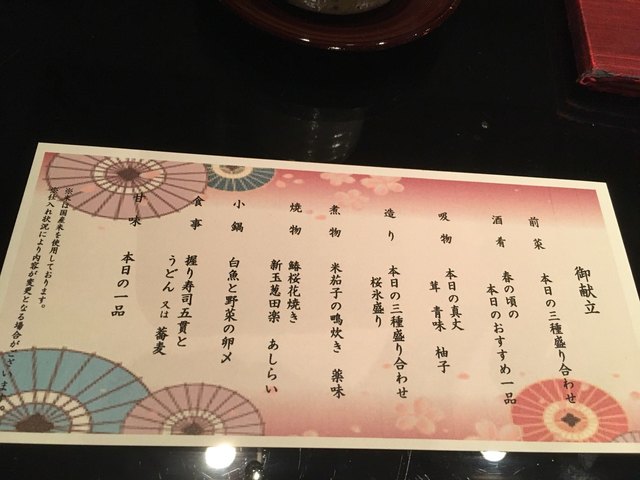 御献立
前菜 本日の三種盛り合わせ
酒肴 春の頃の
本日のおすすめ一品
吸物 本日の真丈
茸 青味 柚子
造り 本日の三種盛り合わせ
桜氷盛り
煮物 米茄子の鴫炊き 薬味
焼物 鰆桜花焼き
新玉葱田楽 あしらい
小鍋 白魚と野菜の卵〆
食事 握り寿司五貫と
うどん 又は 蕎麦
甘味 本日の一品
※米は国産米を使用しております。
※仕入れ状況により内容が変更となる場合がございます。